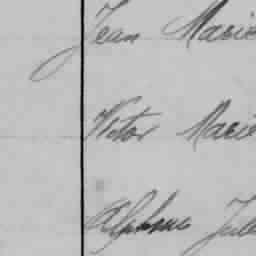 Jean Marie
Victor Marie
Alphonse Jules